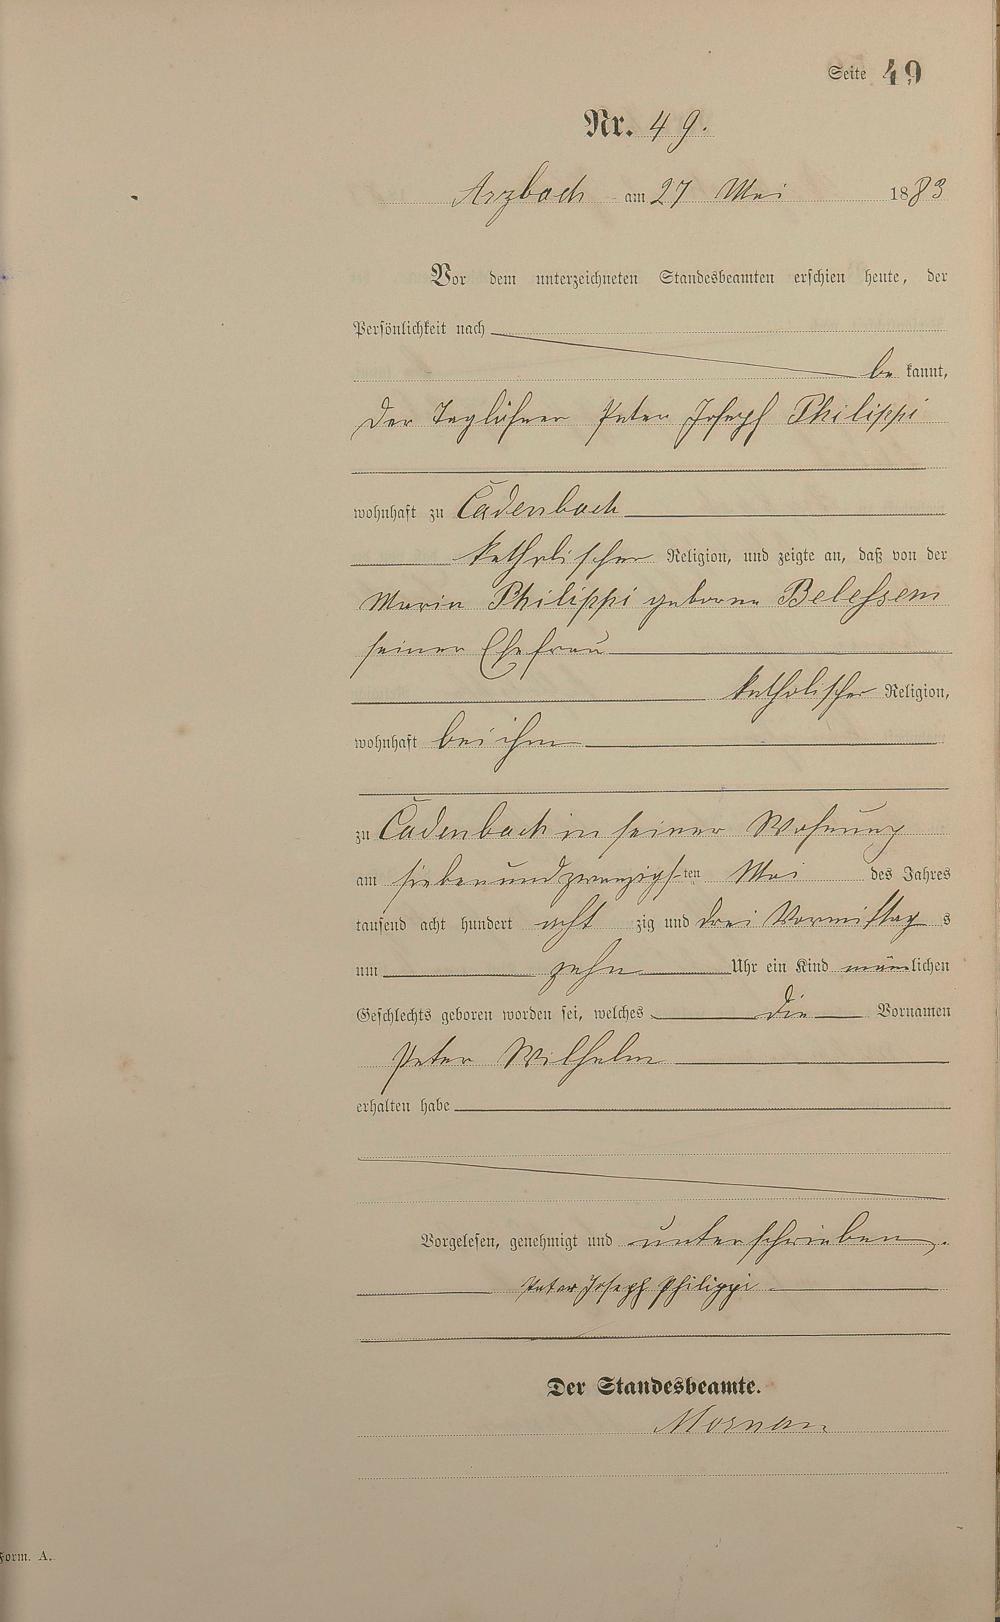 Seite 49
Nr. 49.
Arzbach am 27 Mai 1883
Vor dem unterzeichneten Standesbeamten erschien heute, der
Persönlichkeit nach
be kannt,
der Taglöhner Peter Joseph Philippi
wohnhaft zu Cadenbach
katholischer Religion, und zeigte an, daß von der
Maria Philippi geborne
seiner Ehefrau
katholischer Religion,
wohnhaft bei ihm
zu Cadenbach in seiner Wohnung
am siebenundzwanzigsten Mai des Jahres
tausend acht hundert acht zig und drei Vormittag s
um zehn Uhr ein Kind männlichen
Geschlechts geboren worden sei, welches die Vornamen
Peter Wilhelm
erhalten habe
Vorgelesen, genehmigt und unterschrieben.
Peter Joseph Philippi
Der Standesbeamte.
Form. A.